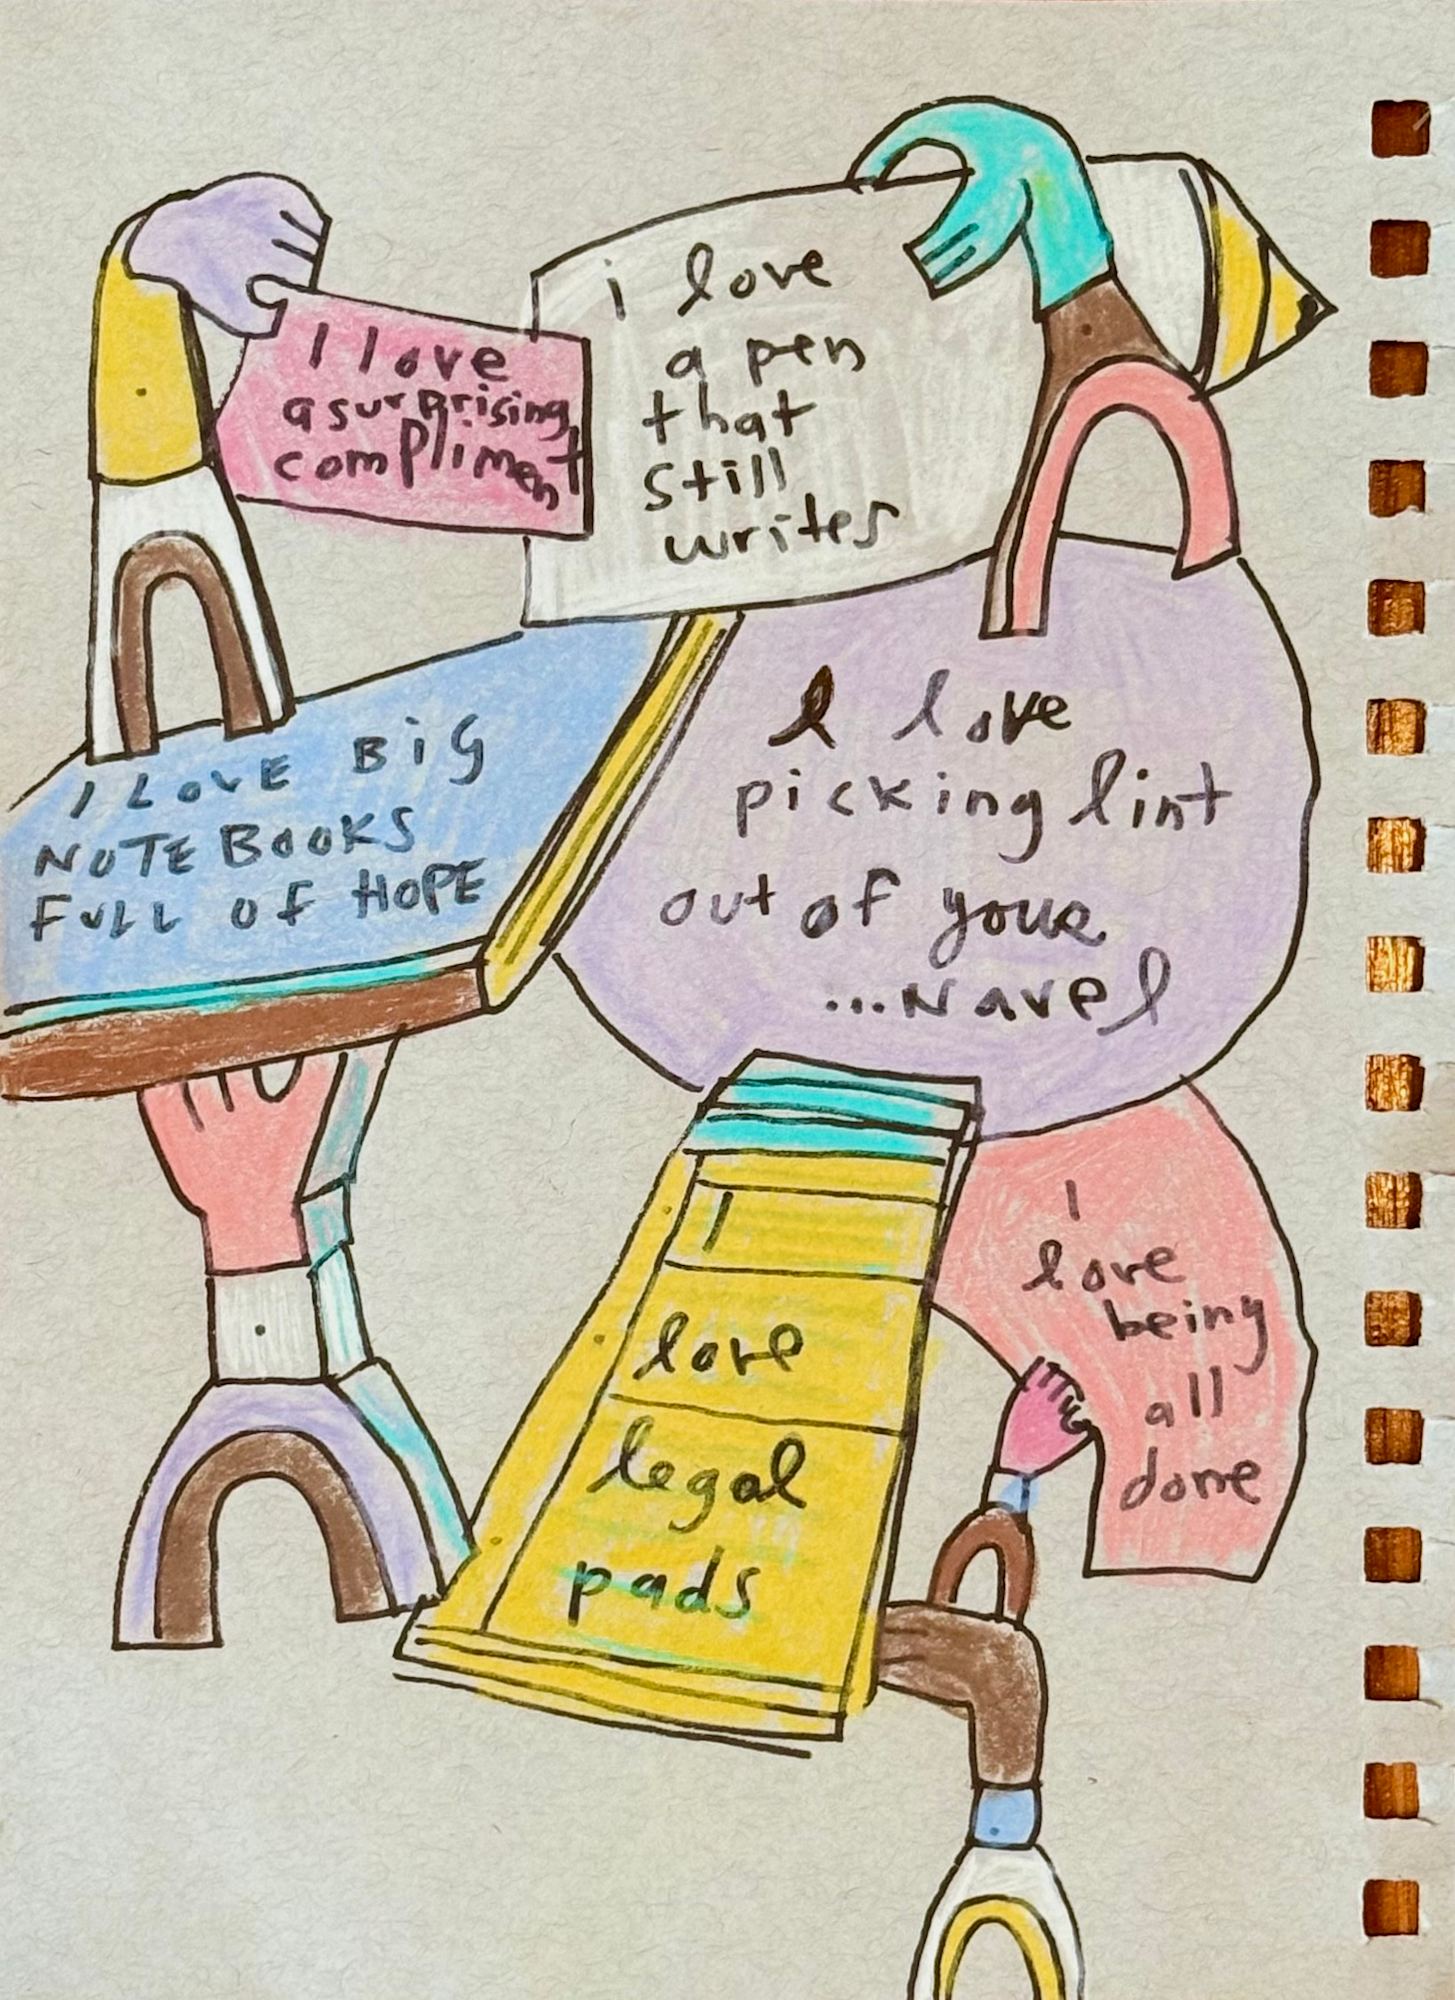 I love
a surprising
compliment
i love
a pen
that
still
writes
I LOVE BiG
NOTEBOOKS
FULL OF HOPE
I love
picking lint
out of your
...Navel
I
love
legal
pads
I
love
being
all
done